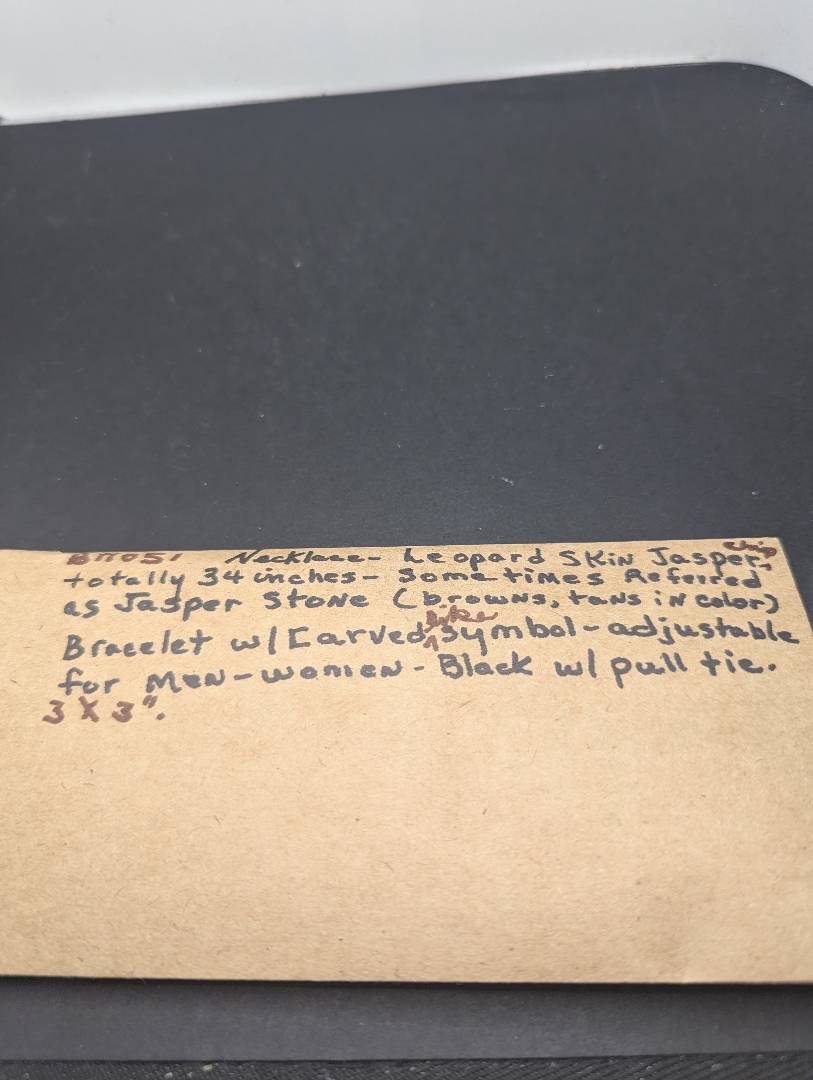 Necklace - Leopard SKiN Jasper, chip
totally 34 inches - Sometimes Referred
as Jasper StoNe (browns, tans iN color)
Bracelet w/ Carved like symbol - adjustable
for MeN - women - Black w/ pull tie.
3 X 3".